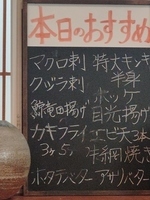 本日のおすすめ
マグロ刺
クジラ刺
鯨竜田揚げ
カキフライ
3ヶ 5ヶ
ホタテバター
特大キンキ
半身
ホッケ
目光揚げ
エビチ3本
網焼き
アサリバター